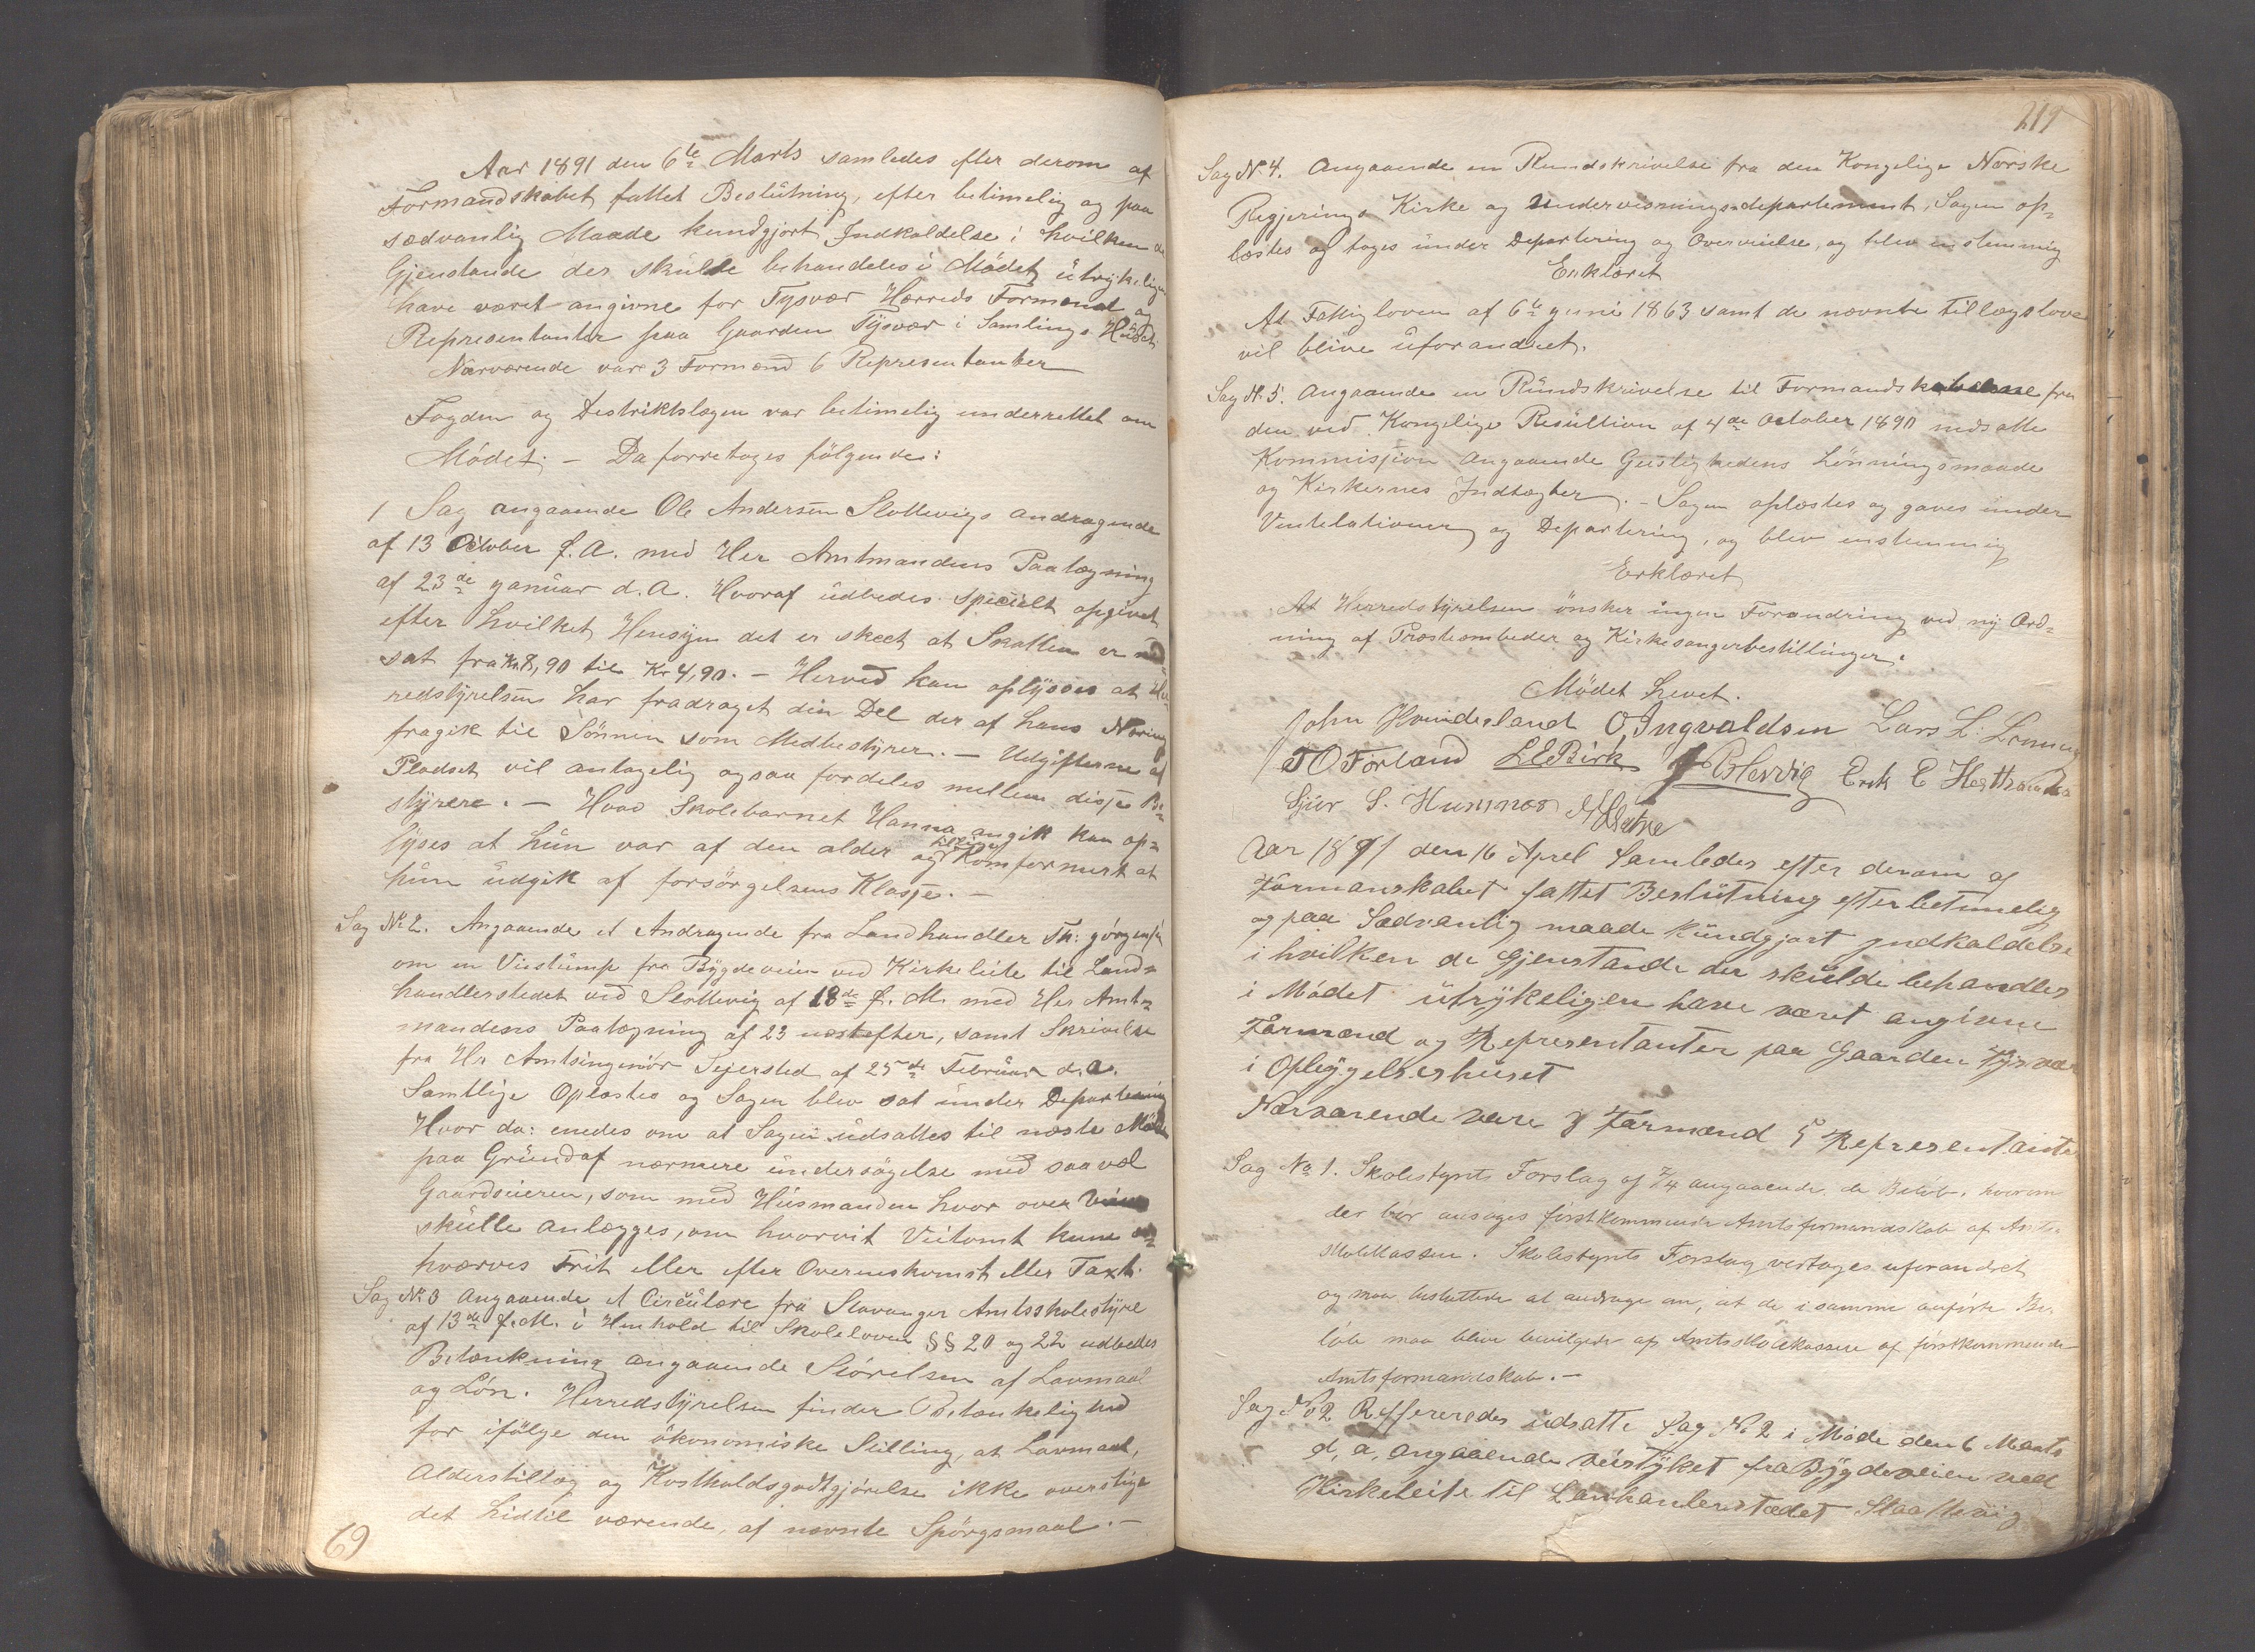 Aar 1891 den 6te Marts samledes efter derom af
Formandskabet fattet Beslutning, efter betimelig og paa
sædvanlig Maade kundgjort Indkaldelse i hvilken de
Gjenstande der skulde behandles i Mødet, utrykeligen
have været angivne for Tysvær Herreds Formænd og
Representanter paa Gaarden Tysvær i Samlings Huset.
Nærværende vare 3 Formænd 6 Representanter
Fogden og Destriktslægen var betimelig underrettet om
Mødet. – Da forretoges følgende:
1 Sag angaaende Ole Andersen Slottevigs andragende
af 13 October f. A. med Her Amtmandens Paategning
af 23de Januar d. A. Hvoraf udbedes specielt opgivet
efter hvilket Hensyn det er skeet at Skatten er ned
sat fra Kr 8,90 til Kr 4,90. – Herved kan oplyses at Her-
redstyrelsen har fradraget den Del der af hans Næring
fragik til Sønnen som Medbestyrer. – Udgifterne af
Pladset vil antagelig ogsaa fordeles mellem disse Be-
styrere. – Hvad Skolebarnet Hanna angik kan op-
lyses at hun var af den alder og Komformert at
hun udgik af forsørgelsens Klasse. –
Sag No 2. Angaaende et Andragende fra Landhandler Th: Jørgensen
om en Veistump fra Bygdeveien ved Kirkeleite til Land-
handlerstedet ved Slottevig af 18de f. M. med Her Amt-
mandens Paategning af 23 næstefter, samt Skrivelse
fra Hr Amtsingeniør Sejersted af 25de Februar d. A.
Samtlige Oplæstes og Sagen blev sat under Departering
Hvor da: enedes om at Sagen udsattes til næste Møde
paa Grund af nærmere undersøgelse med saavel
Gaardeieren, som med Husmanden hvor over Veien
skulle anlægges, om hvorvit Veitomt kune er-
hværves Frit eller efter Overenskomst eller Taxt.
Sag No 3 Angaaende et Circulære fra Stavanger Amtsskolestyre
af 13de f. M. i Henhold til Skoleloven §§ 20 og 22 udbedes
Betænkning angaaende Størelsen af Lavmaal
og Løn. Herredstyrelsen finder Betænkelighed
for ifølge den økonomiske Stilling, at Lavmaal,
Alderstillæg og Kostholdsgodtgjørelse ikke overstige
det hidtil værende, af nævnte Spørgsmaal. –
69
219
Sag No 4. Angaaende en Rundskrivelse fra den Kongelige Norske
Regjerings Kirke og Undervisningsdepartement, Sagen op-
læstes og toges under Departering og Overveielse, og blev enstemmig
Erklæret
At Fattigloven af 6te Juni 1863 samt de nævnte tillægslove
vil blive uforandret.
Sag No 5. Angaaende en Rundskrivelse til Formandskaberne fra
den ved Kongelige Resultion af 4de October 1890 nedsatte
Kommission angaaende Geistlighedens Lønningsmaade
og Kirkernes Indtægter. – Sagen oplæstes og gaves under
Ventelationer og Departering, og blev enstemmig
Erklæret
At Herredstyrelsen ønsker ingen Forandring ved ny Ord-
ning af Præsteembeder og Kirkesangerbestillinger.
Mødet hevet.
John Hvinderland O. Ingvaldsen Lars L.
T O Førland L E Birk Erik E
Sjur S. Humnes
Aar 1891 den 16 April Samledes efter derom af
Formanskabet fattet Beslutning efter betimelig
og paa Sædvanlig maade Kundgjort Indkaldelse
i hvilken de Gjenstande der skulde behandles
i Mødet utrykeligen have været angivne
Formænd og Representanter paa Gaarden Tysvær
i Oplygelseshuset
Nærværende vare 3 Formænd 5 Representanter
Sag No 1. Skolestyrets Forslag af 7/4 angaaende de Beløb, hvorom
der bør ansøges førstkommende Amtsformandskab af Amts-
skolekassen. Skolestyrets Forslag vertoges uforandret
og man besluttede at andrage om, at de i samme anførte Be-
løb maa blive bevilgede af Amtsskolekassen af førstkommende
Amtsformandskab. –
Sag No 2 Reffereredes udsatte Sag No 2 i Møde den 6 Marts
d, a, angaaende veistyket fra Bygdeveien ved
Kirkeleite til Lanhanlerstædet Slaattevig